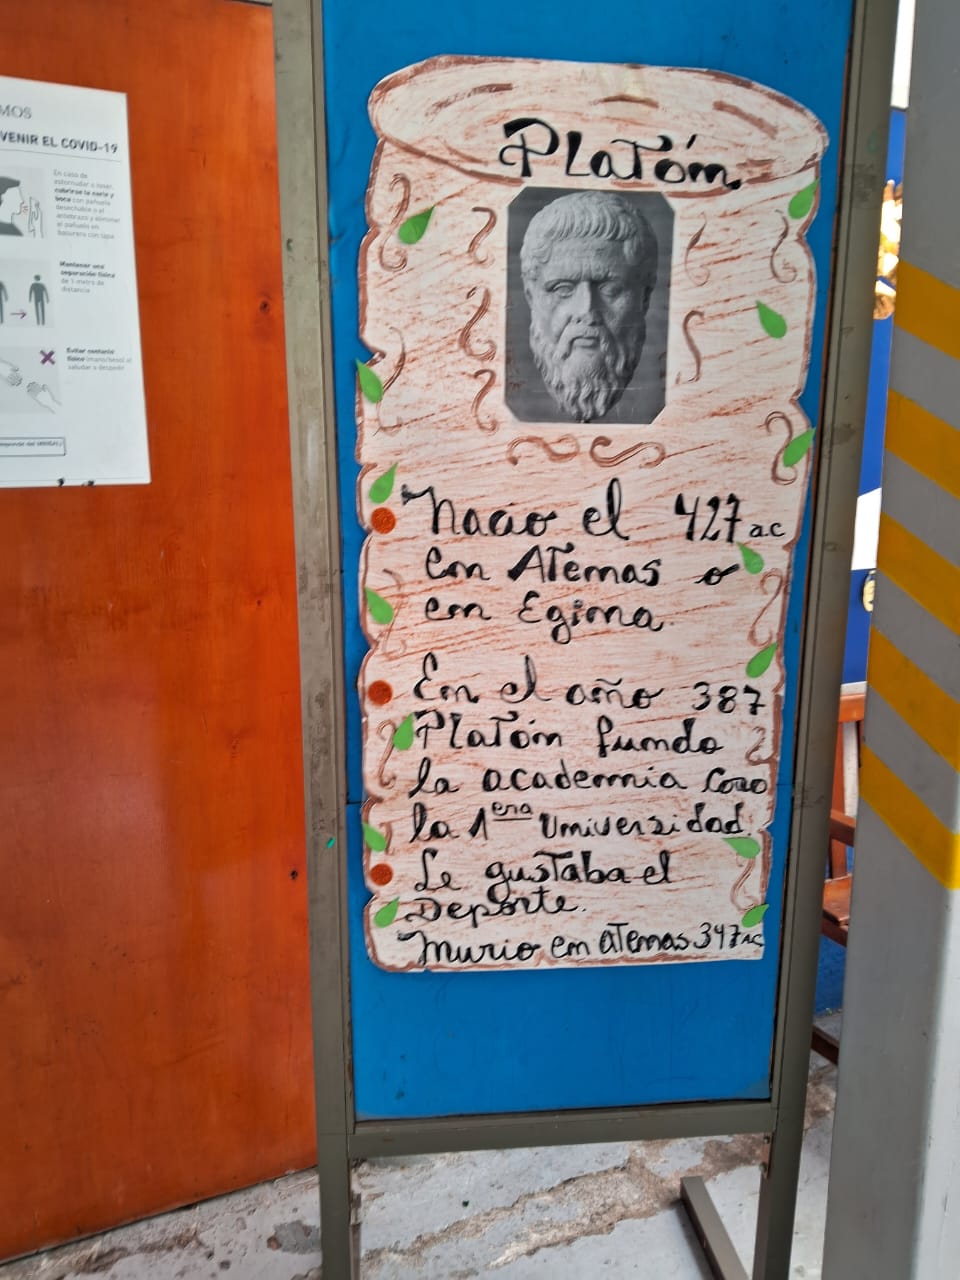 MOS
VENIR EL COVID-19
En caso de
estornudar o toser,
cubrirse la nariz y
boca con pañuelo
desechable o el
antebrazo y eliminar
el pañuelo en
basurero con tapa.
Mantener una
separación física
de 1 metro de
distancia
Evitar contacto
físico (mano/beso) al
saludar o despedir
PLatóm.
Nacio el 427 a.c
em ATemas o
em Egima.
Em el año 387
PLatóm fumdo
la academia como
la 1era Umiversidad.
Le gustaba el
Deporte.
Murio em aTemas 347 AC